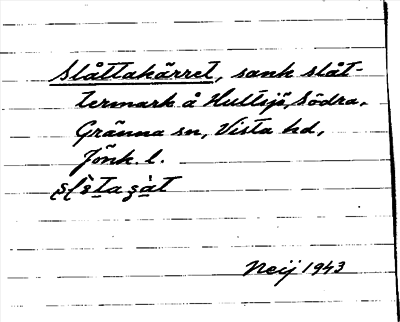 Slåttakärret, sank slåt-
termark å Hultsjö, Södra,
Gränna sn, Vista hd,
Jönk. l.
Neij 1943